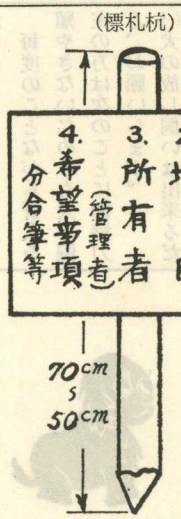 (標札杭)
3. 所有者
(管理者)
4. 希望事項
分合筆等
70cm
〜
50cm